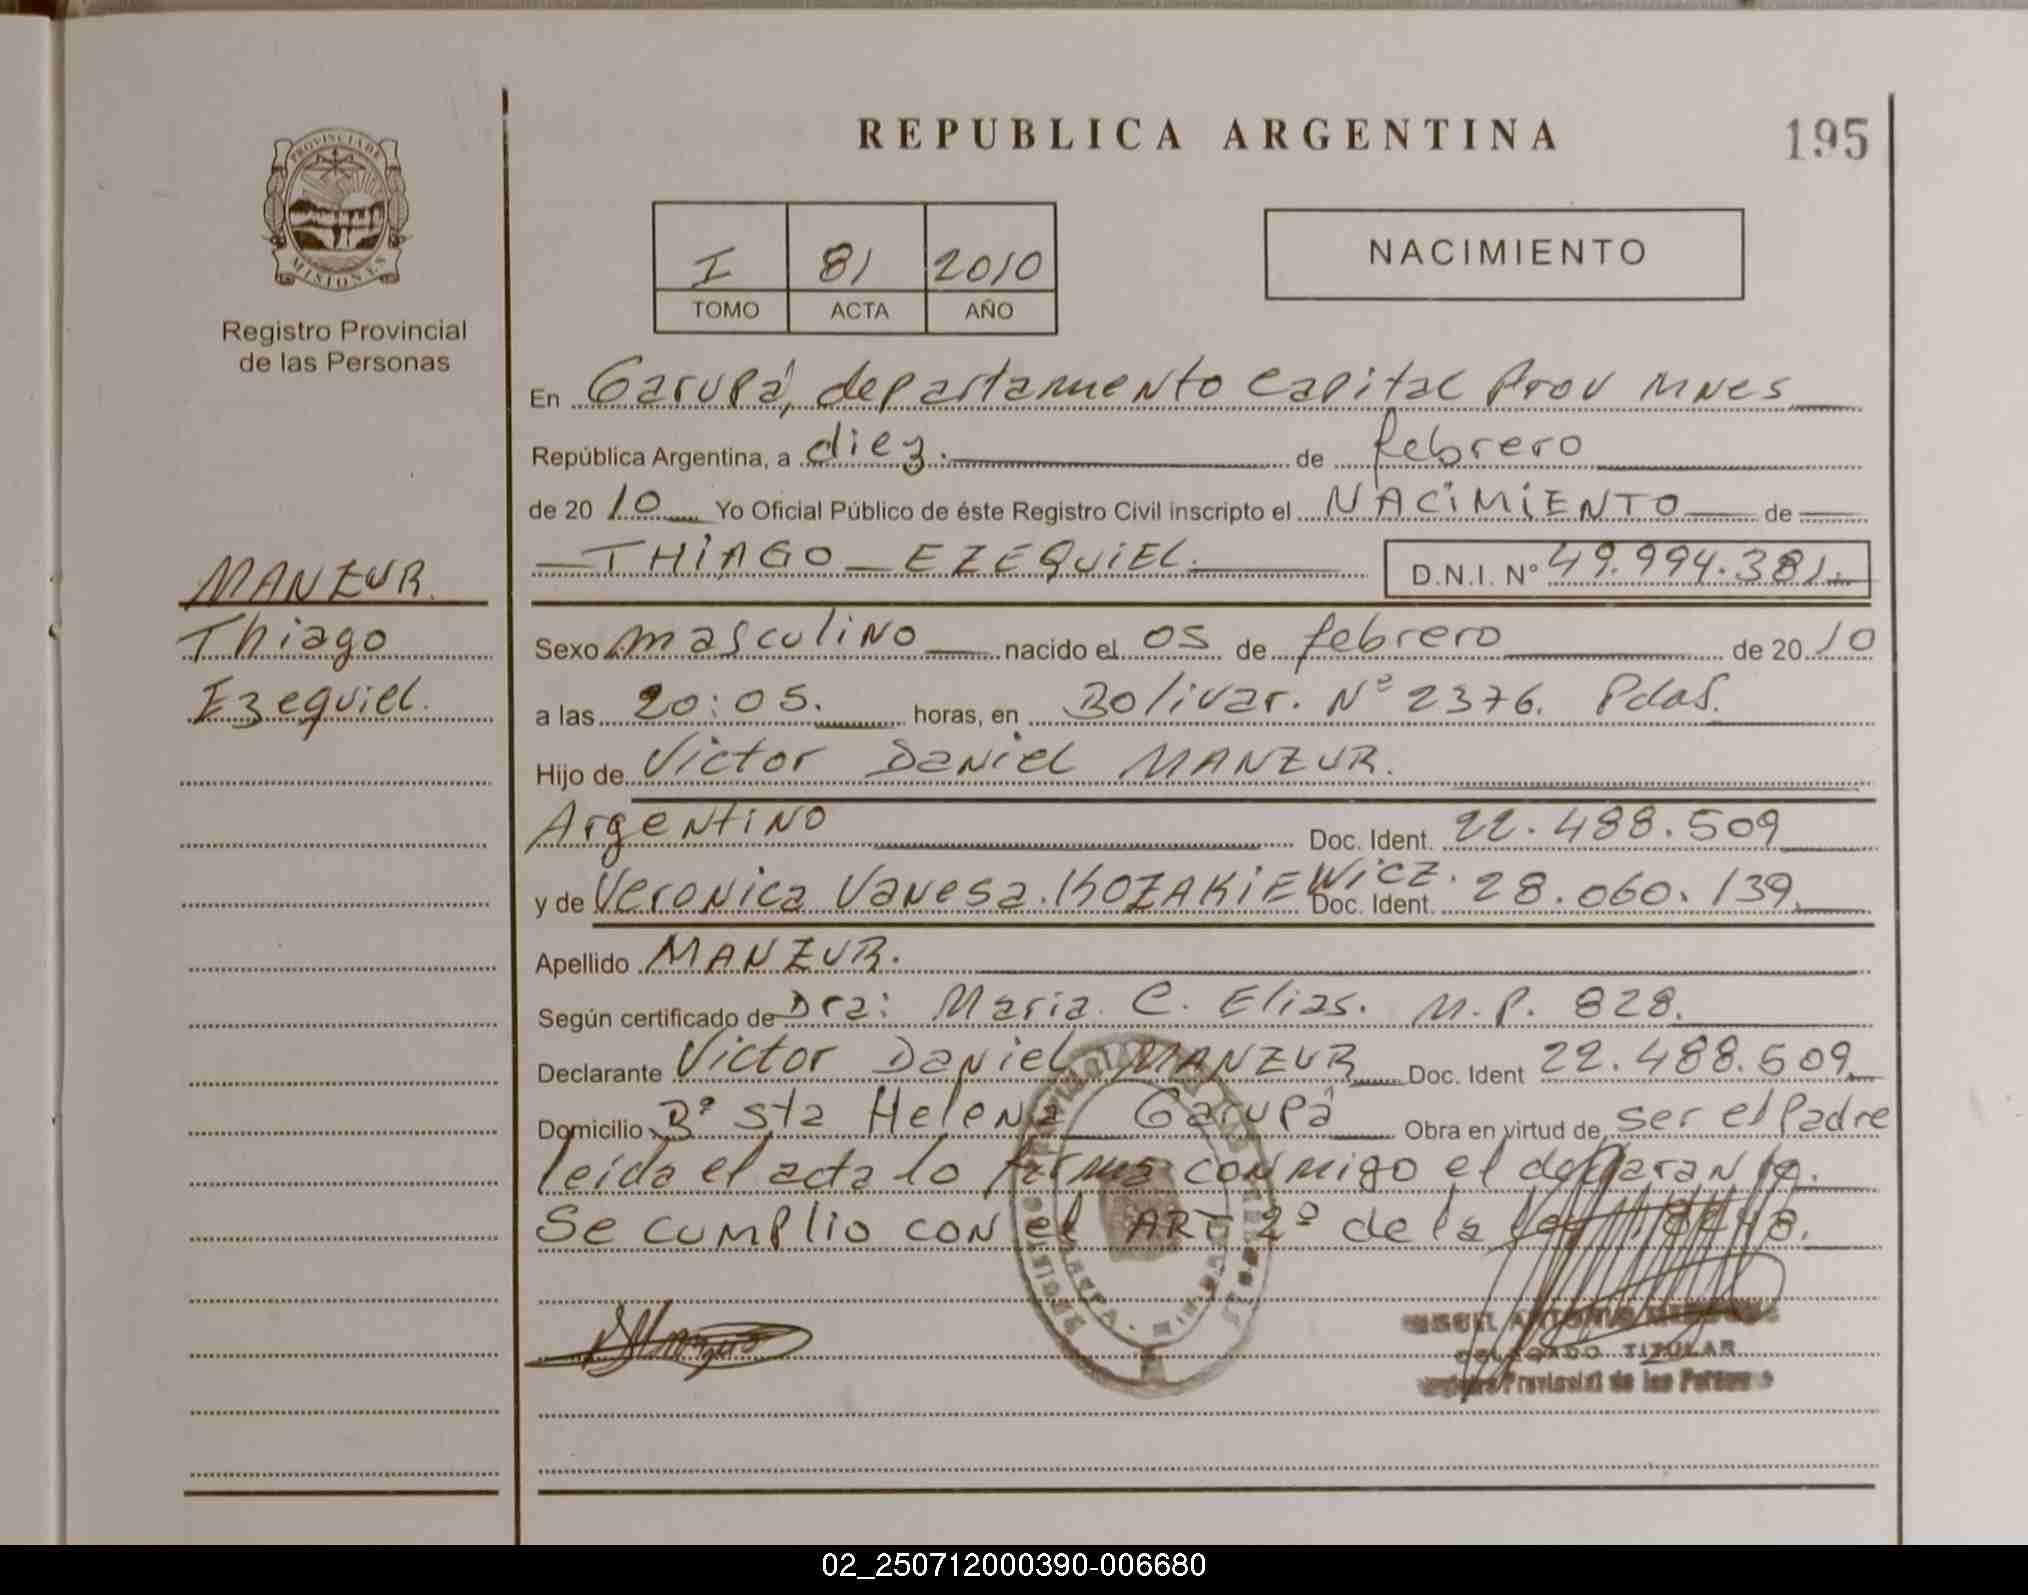 REPUBLICA ARGENTINA
195
PROVINCIA DE
MISIONES
Registro Provincial
de las Personas
I 81 2010
TOMO ACTA AÑO
NACIMIENTO
En Garupá, departamento Capital Prov Mnes
República Argentina, a diez. de febrero
de 20 10 Yo Oficial Público de éste Registro Civil inscripto el NACIMIENTO de
THIAGO EZEQUIEL. D.N.I. Nº 49.994.381.
MANZUR.
Thiago
Ezequiel.
Sexo masculino nacido el 05 de febrero de 20 10
a las 20:05. horas, en Bolivar. Nº 2376. Pdas.
Hijo de Victor Daniel MANZUR.
Argentino Doc. Ident. 22.488.509
y de Veronica Vanesa. KOZAKIEWICZ. Doc. Ident. 28.060.139.
Apellido MANZUR.
Según certificado de Dra: Maria C. Elias. M.P. 828.
Declarante Victor Daniel MANZUR Doc. Ident 22.488.509.
Domicilio Bº Sta Helena Garupá Obra en virtud de ser el Padre
leida el acta lo firma conmigo el declarante.
Se cumplio con el ART 2º de la Ley
ANTONIO
DELEGADO TITULAR
Provincial de las Personas
02_250712000390-006680